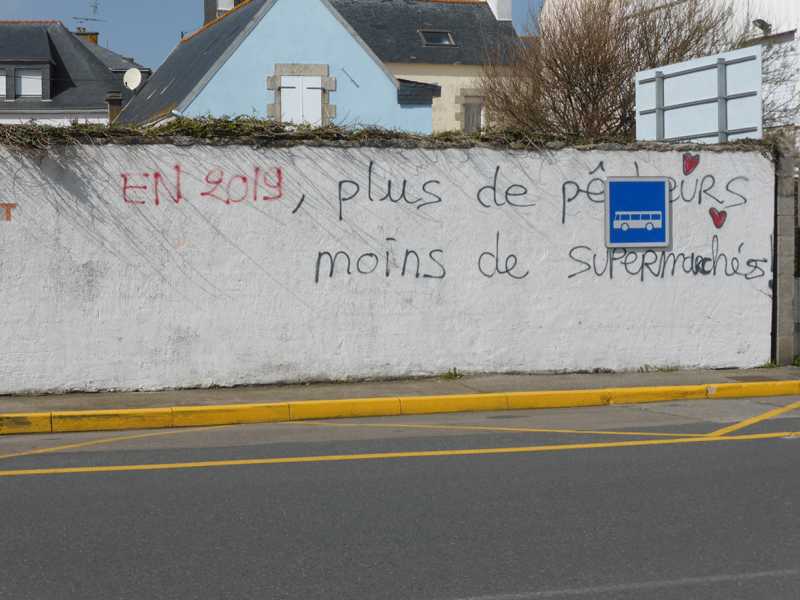 EN 2019, plus de pêchEURS
moins de SUPERmarchés!